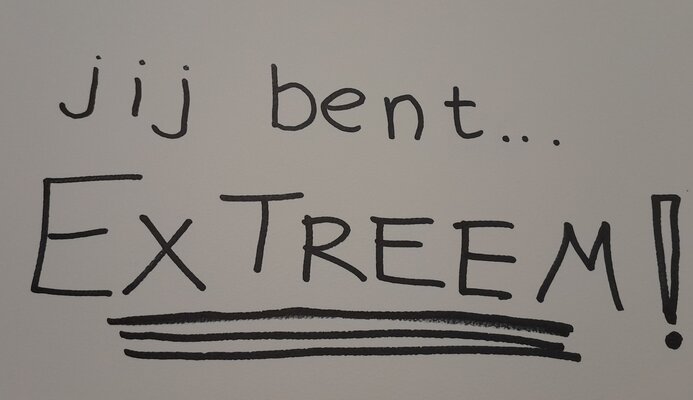 jij bent...
EXTREEM!